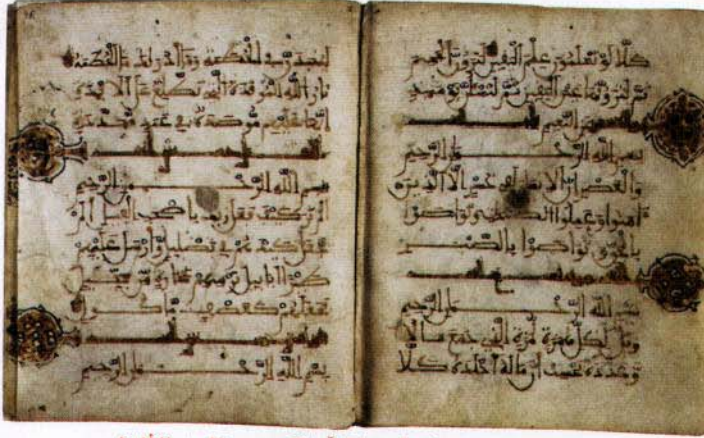 كلا لو تعلمون علم اليقين لترون الجحيم
ثم لترونها عين اليقين ثم لتسئلن يومئذ
عن النعيم
بسم الله الرحمن الرحيم
والعصر ان الانسان لفي خسر الا الذين
امنوا وعملوا الصلحت وتواصوا
بالحق وتواصوا بالصبر
بسم الله الرحمن الرحيم
ويل لكل همزة لمزة الذي جمع مالا
وعدده يحسب ان ماله اخلده كلا
لينبذن في الحطمة وما ادريك ما الحطمة
نار الله الموقدة التي تطلع على الافدة
انها عليهم موصدة في عمد ممددة
بسم الله الرحمن الرحيم
الم تر كيف فعل ربك باصحب الفيل الم
يجعل كيدهم في تضليل وارسل عليهم
طيرا ابابيل ترميهم بحجارة من سجيل
فجعلهم كعصف ماكول
بسم الله الرحمن الرحيم